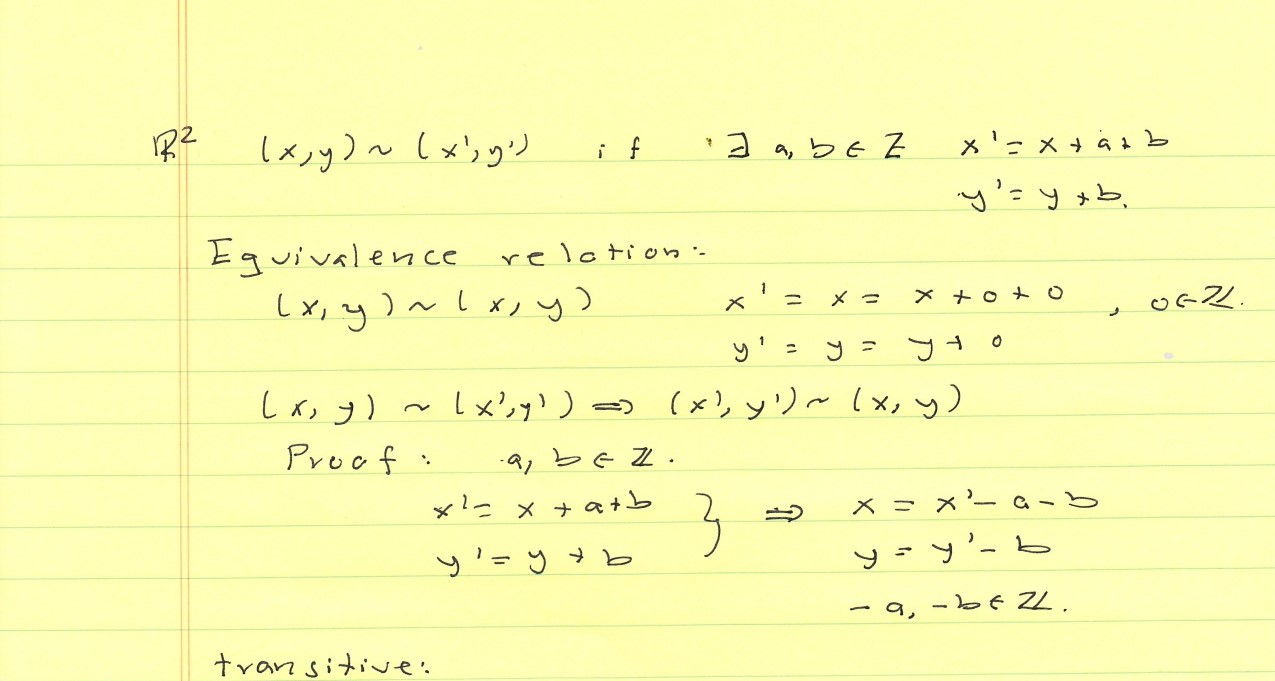 ℝ² (x,y) ~ (x',y') if ∃ a, b ∈ Z x' = x + a + b
y' = y + b.
Equivalence relation:
(x, y) ~ (x, y) x' = x = x + 0 + 0 , 0 ∈ ℤ.
y' = y = y + 0
(x, y) ~ (x', y') ⇒ (x', y') ~ (x, y)
Proof : a, b ∈ ℤ.
x' = x + a + b } ⇒ x = x' - a - b
y' = y + b y = y' - b
- a, - b ∈ ℤ.
transitive: